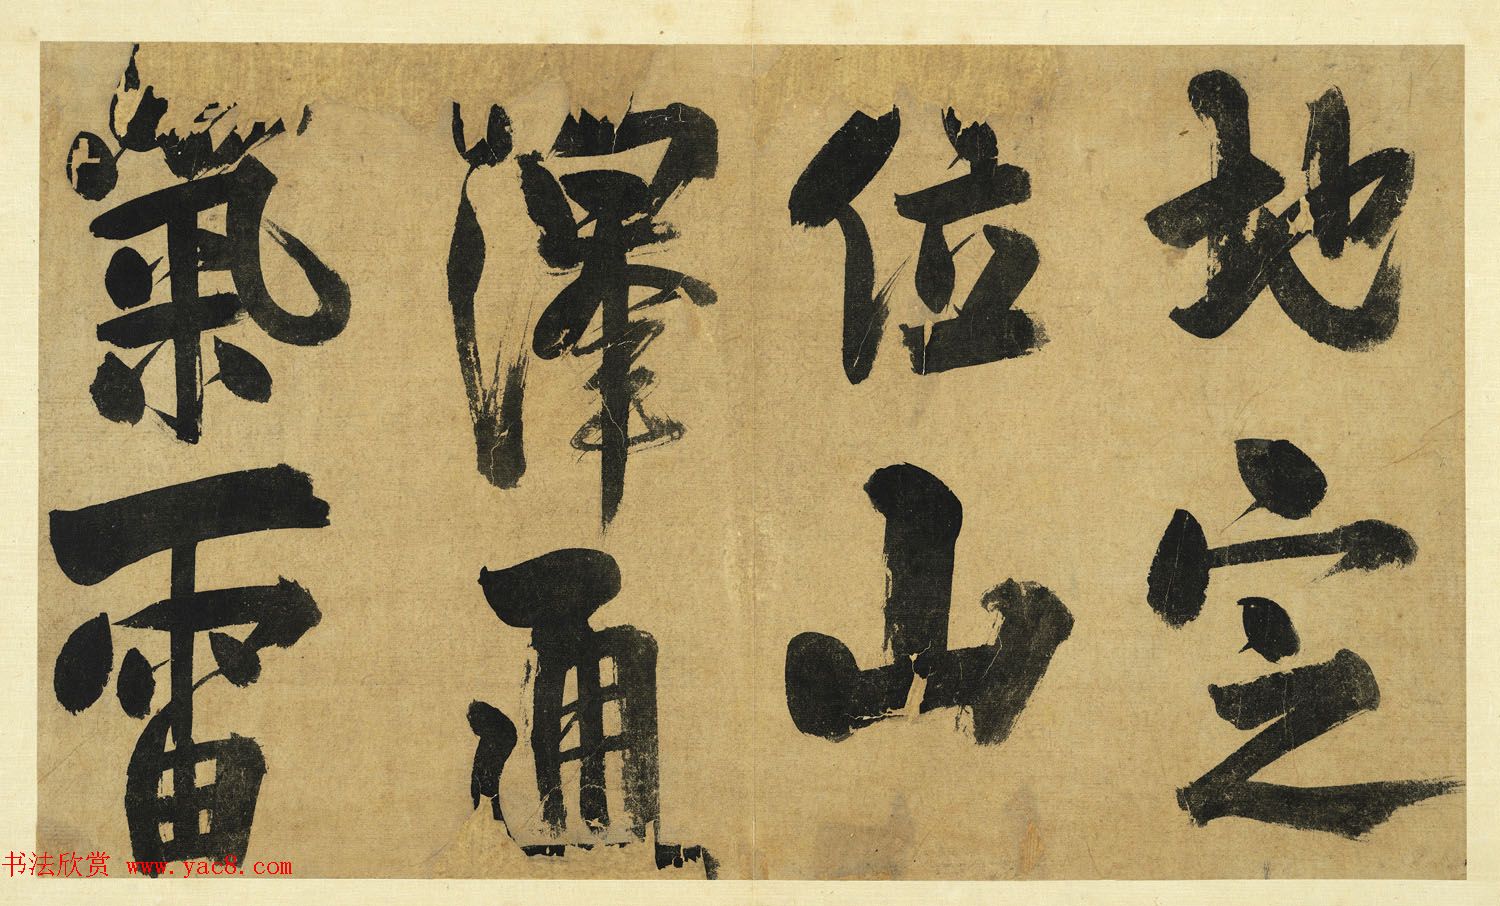 地定
位山
澤通
氣雷
书法欣赏 www.yac8.com